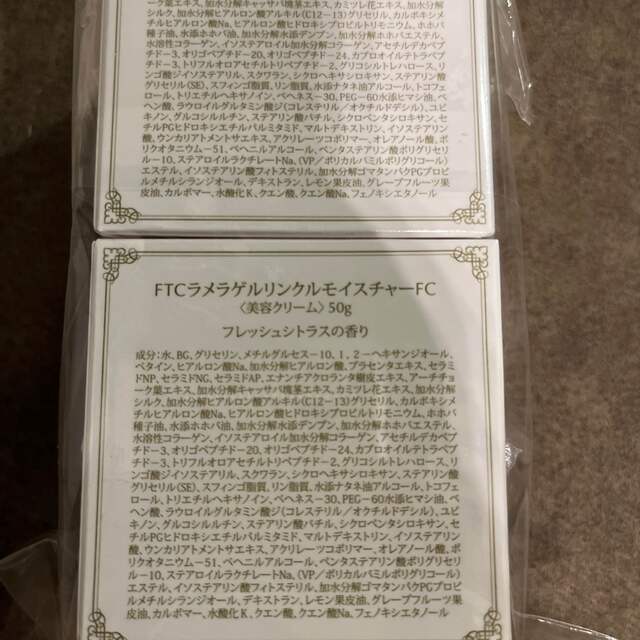 ーク葉エキス、加水分解キャッサバ塊茎エキス、カミツレ花エキス、加水分解
シルク、加水分解ヒアルロン酸アルキル(C12-13)グリセリル、カルボキシメ
チルヒアルロン酸Na、ヒアルロン酸ヒドロキシプロピルトリモニウム、ホホバ
種子油、水添ホホバ油、加水分解水添デンプン、加水分解ホホバエステル、
水溶性コラーゲン、イソステアロイル加水分解コラーゲン、アセチルデカペプ
チド-3、オリゴペプチド-20、オリゴペプチド-24、カプロオイルテトラペプ
チド-3、トリフルオロアセチルトリペプチド-2、グリコシルトレハロース、リ
ンゴ酸ジイソステアリル、スクワラン、シクロヘキサシロキサン、ステアリン酸
グリセリル(SE)、スフィンゴ脂質、リン脂質、水添ナタネ油アルコール、トコフェ
ロール、トリエチルヘキサノイン、ベヘネス-30、PEG-60水添ヒマシ油、ベ
ヘン酸、ラウロイルグルタミン酸ジ(コレステリル/オクチルドデシル)、ユビ
キノン、グルコシルルチン、ステアリン酸バチル、シクロペンタシロキサン、セ
チルPGヒドロキシエチルパルミタミド、マルトデキストリン、イソステアリン
酸、ウンカリアトメントサエキス、アクリレーツコポリマー、オレアノール酸、ポ
リクオタニウム-51、ベヘニルアルコール、ペンタステアリン酸ポリグリセリ
ル-10、ステアロイルラクチレートNa、(VP/ポリカルバミルポリグリコール)
エステル、イソステアリン酸フィトステリル、加水分解ゴマタンパクPGプロピ
ルメチルシランジオール、デキストラン、レモン果皮油、グレープフルーツ果
皮油、カルボマー、水酸化K、クエン酸、クエン酸Na、フェノキシエタノール
FTCラメラゲルリンクルモイスチャーFC
〈美容クリーム〉50g
フレッシュシトラスの香り
成分:水、BG、グリセリン、メチルグルセス-10、1,2-ヘキサンジオール、
ベタイン、ヒアルロン酸Na、加水分解ヒアルロン酸、プラセンタエキス、セラミ
ドNP、セラミドNG、セラミドAP、エナンチアクロランタ樹皮エキス、アーチチョ
ーク葉エキス、加水分解キャッサバ塊茎エキス、カミツレ花エキス、加水分解
シルク、加水分解ヒアルロン酸アルキル(C12-13)グリセリル、カルボキシメ
チルヒアルロン酸Na、ヒアルロン酸ヒドロキシプロピルトリモニウム、ホホバ
種子油、水添ホホバ油、加水分解水添デンプン、加水分解ホホバエステル、
水溶性コラーゲン、イソステアロイル加水分解コラーゲン、アセチルデカペプ
チド-3、オリゴペプチド-20、オリゴペプチド-24、カプロオイルテトラペプ
チド-3、トリフルオロアセチルトリペプチド-2、グリコシルトレハロース、リ
ンゴ酸ジイソステアリル、スクワラン、シクロヘキサシロキサン、ステアリン酸
グリセリル(SE)、スフィンゴ脂質、リン脂質、水添ナタネ油アルコール、トコフェ
ロール、トリエチルヘキサノイン、ベヘネス-30、PEG-60水添ヒマシ油、ベ
ヘン酸、ラウロイルグルタミン酸ジ(コレステリル/オクチルドデシル)、ユビ
キノン、グルコシルルチン、ステアリン酸バチル、シクロペンタシロキサン、セ
チルPGヒドロキシエチルパルミタミド、マルトデキストリン、イソステアリン
酸、ウンカリアトメントサエキス、アクリレーツコポリマー、オレアノール酸、ポ
リクオタニウム-51、ベヘニルアルコール、ペンタステアリン酸ポリグリセリ
ル-10、ステアロイルラクチレートNa、(VP/ポリカルバミルポリグリコール)
エステル、イソステアリン酸フィトステリル、加水分解ゴマタンパクPGプロピ
ルメチルシランジオール、デキストラン、レモン果皮油、グレープフルーツ果
皮油、カルボマー、水酸化K、クエン酸、クエン酸Na、フェノキシエタノール